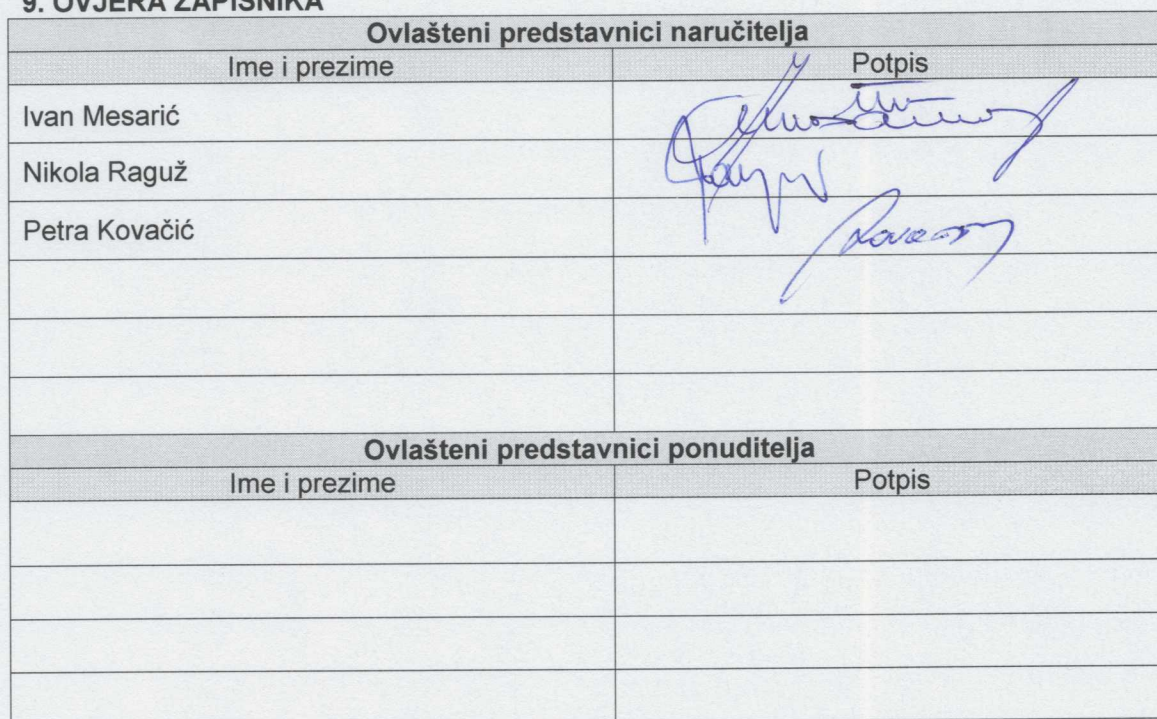 9. OVJERA ZAPISNIKA
Ovlašteni predstavnici naručitelja
Ime i prezime Potpis
Ivan Mesarić
Nikola Raguž
Petra Kovačić
Ovlašteni predstavnici ponuditelja
Ime i prezime Potpis